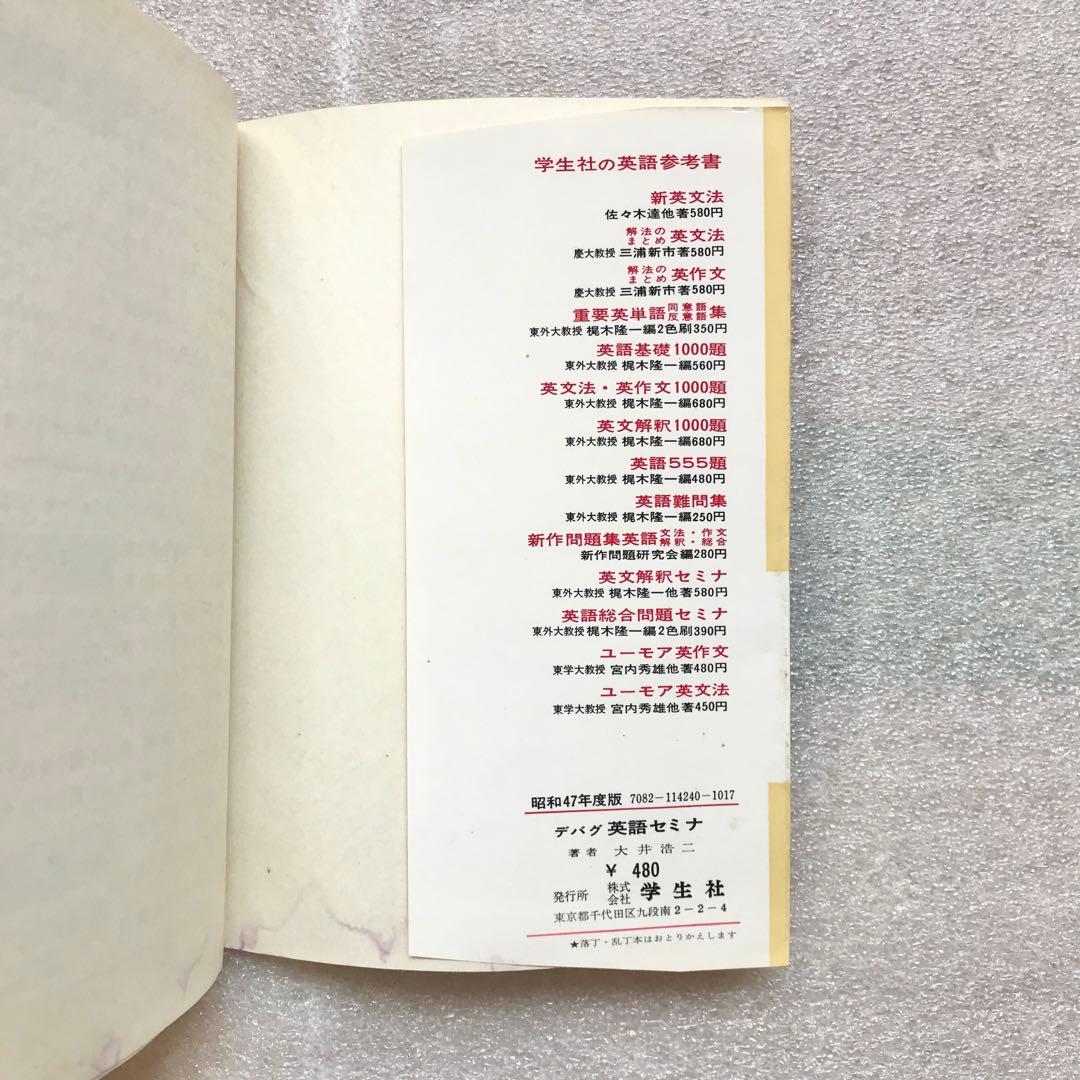 学生社の英語参考書
新英文法
佐々木達他著580円
解法のまとめ 英文法
慶大教授 三浦新市著580円
解法のまとめ 英作文
慶大教授 三浦新市著580円
重要英単語同意語反意語集
東外大教授 梶木隆一編2色刷350円
英語基礎1000題
東外大教授 梶木隆一編560円
英文法・英作文1000題
東外大教授 梶木隆一編680円
英文解釈1000題
東外大教授 梶木隆一編680円
英語555題
東外大教授 梶木隆一編480円
英語難問集
東外大教授 梶木隆一編250円
新作問題集英語文法・作文解釈・総合
新作問題研究会編280円
英文解釈セミナ
東外大教授 梶木隆一他著580円
英語総合問題セミナ
東外大教授 梶木隆一編2色刷390円
ユーモア英作文
東学大教授 宮内秀雄他著480円
ユーモア英文法
東学大教授 宮内秀雄他著450円
昭和47年度版 7082-114240-1017
デバグ 英語セミナ
著者 大井浩二
¥ 480
発行所 株式会社 学生社
東京都千代田区九段南2-2-4
★落丁・乱丁本はおとりかえします